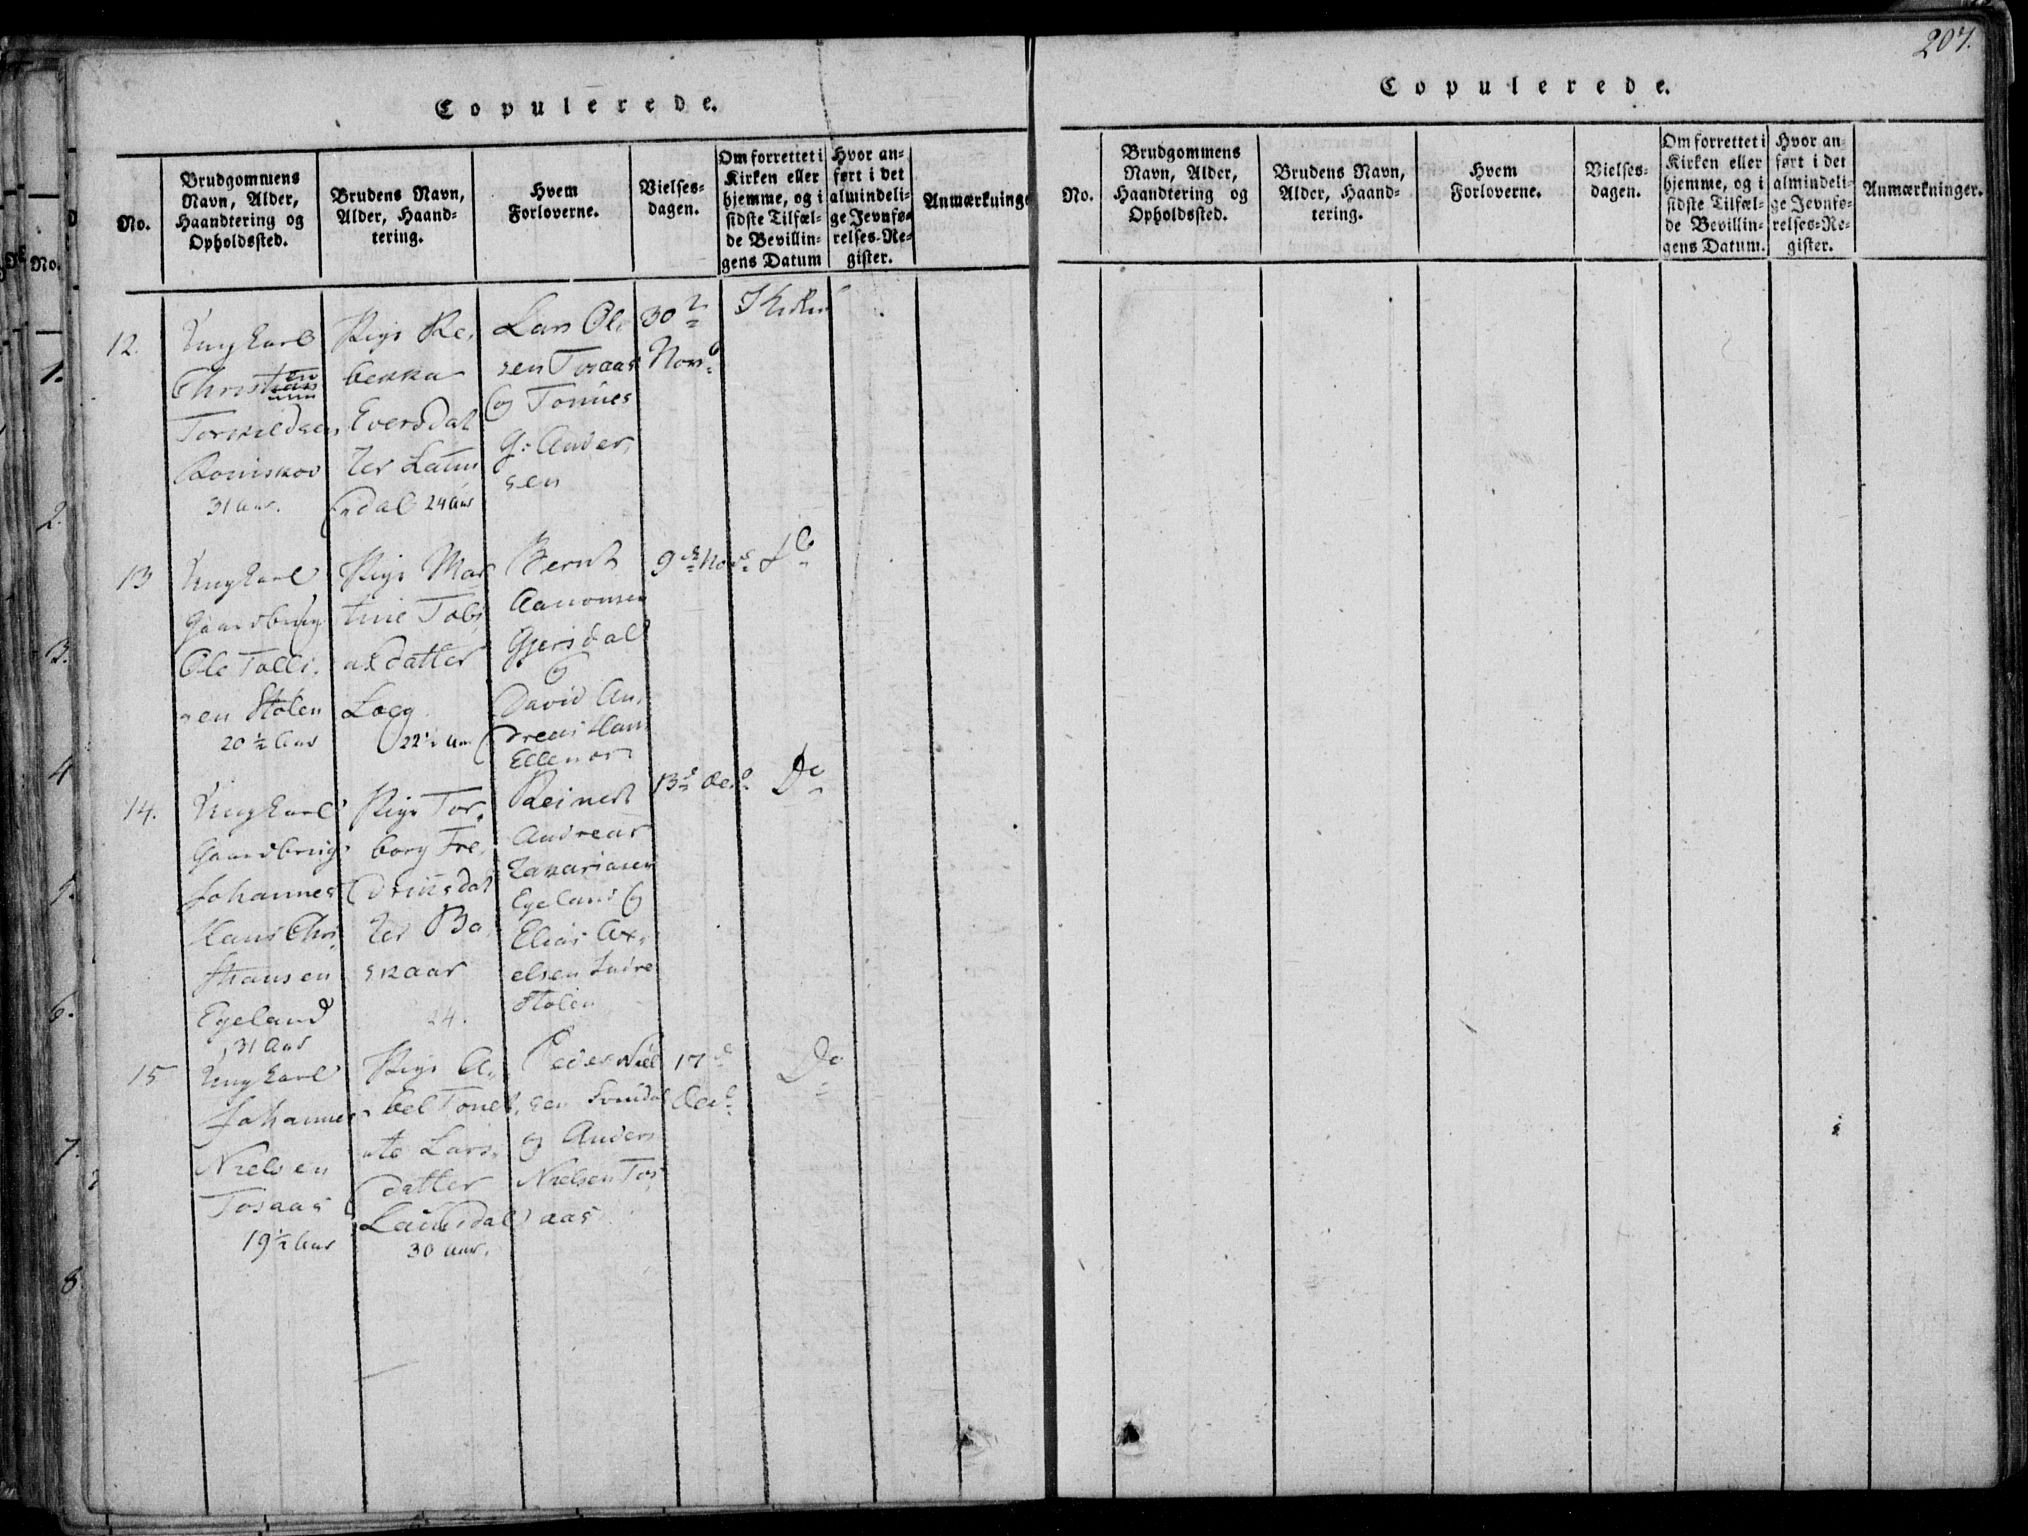 207.
Copulerede.
No.
Brudgommens
Navn, Alder,
Haandtering og
Opholdssted.
Brudens Navn,
Alder, Haand-
tering.
Hvem
Forloverne.
Vielses-
dagen.
Om forrettet i
Kirken eller
hjemme, og i
sidste Tilfæl-
de Bevillin-
gens Datum
Hvor an-
ført i det
almindeli-
ge Jevnfø-
relses-Re-
gister.
Anmærkninge
12.
Ungkarl
Torkildsen
31 Aar.
Pige Re-
bekka
Eversdat
ter
24 Aar
Lars Ol-
sen Tosaas
og Tønnes
G: Ander
sen
30
Nov
I Kirken
13
Ungkarl
Gaardbrug
Ole Tolli-
sen Stølen
20 ½ Aar
Pige Mar
tine Tobi
asdatter
Loeg
22 ½ Aar
Bernt
Aanonsen
Gjersdal
og
David An-
dreas Han
Ellenor
9de Nov
Do
14.
Ungkarl
Gaardbrug
Johannes
Hans Chri-
stiansen
Egeland
31 Aar
Pige Tor-
borg Fre-
driksdat
ter Bo-
skaar
24.
Reinert
Andreas
Zakariasen
Egeland og
Elias Ax-
elsen Indre
Stølen
13de Dec
Do
15
Ungkarl
Johannes
Nielsen
Tosaas
19 ½ Aar
Pige A-
bel Tone
te Lars-
datter
30 Aar.
Peder Niel
sen
og Anders
Nielsen Tos
aas
17de
Dec
Do
No.
1.
2.
3.
4
5.
6.
7.
8.
Copulerede.
No.
Brudgommens
Navn, Alder,
Haandtering og
Opholdssted.
Brudens Navn,
Alder, Haand-
tering.
Hvem
Forloverne.
Vielses-
dagen.
Om forrettet i
Kirken eller
hjemme, og i
sidste Tilfæl-
de Bevillin-
gens Datum.
Hvor an-
ført i det
almindeli-
ge Jevnfø-
relses-Re-
gister.
Anmærkninger.